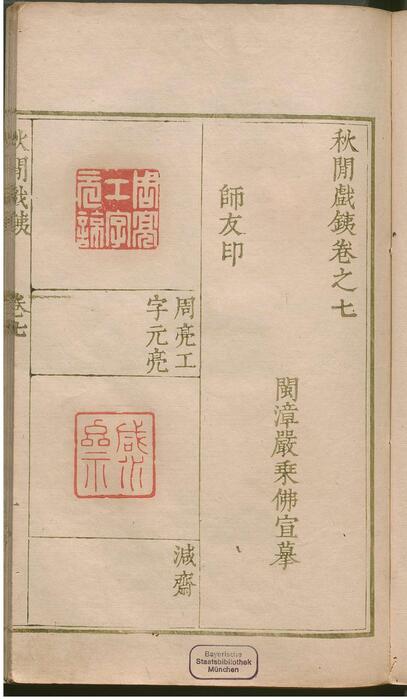 秋閒戲銕卷之七
師友印
閩漳嚴乗佛宣摹
周亮
工字
周亮工
字元亮
減齋
減齋
秋閒戲銕
卷七
Bayerische
Staatsbibliothek
München